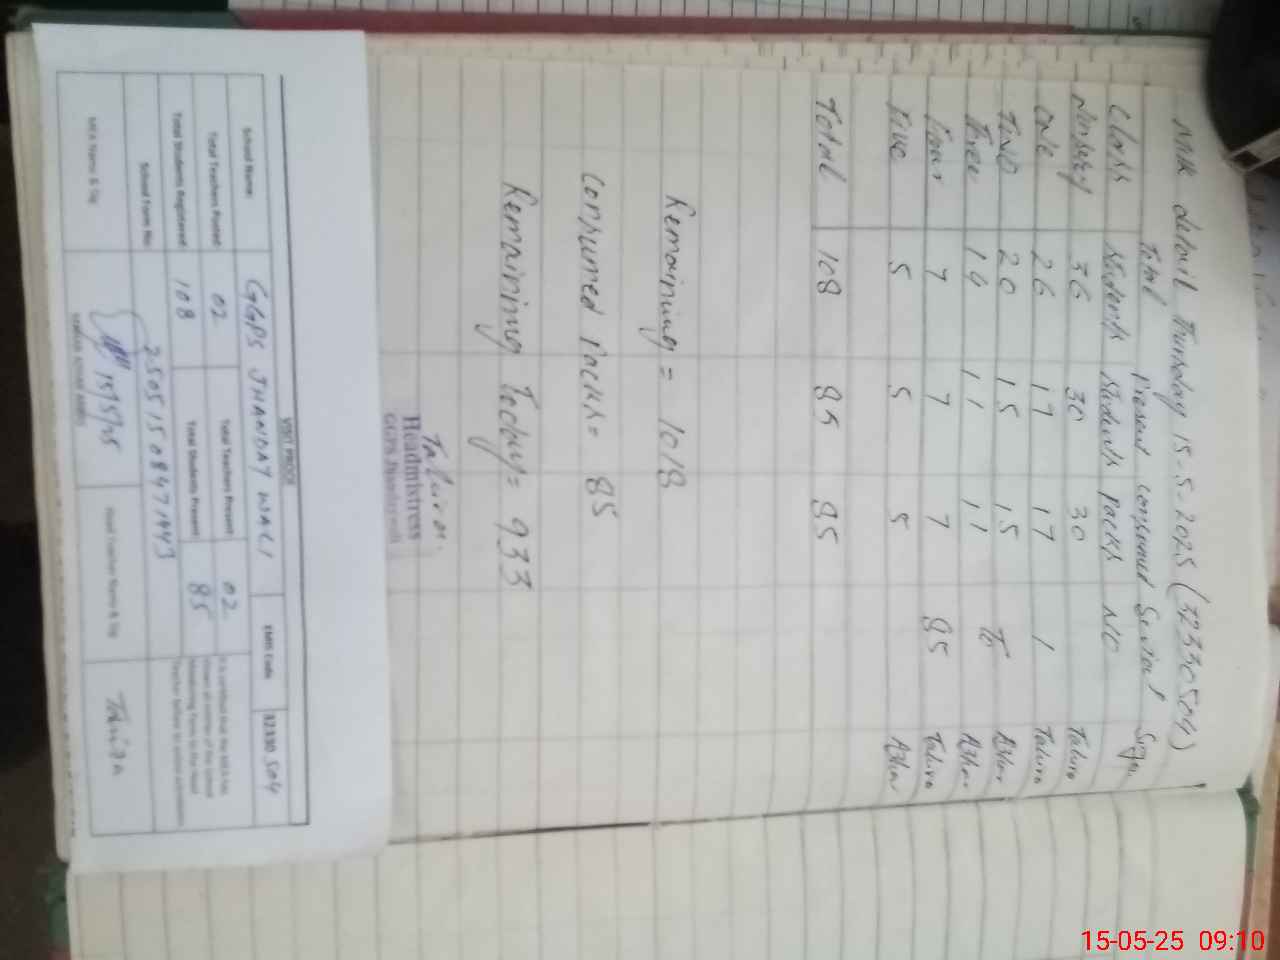 Milk detail Thursday 15-5-2025 (32330504)
Class Total Students Present Students consumed packs Serial NO Sign
Nursery 36 30 30 Tahira
One 26 17 17 1 Tahira
Two 20 15 15 To Azhar
Three 14 11 11 Azhar
Four 7 7 7 85 Tahira
Five 5 5 5 Azhar
Total 108 85 85
Remaining = 1018
Consumed Packs = 85
Remaining Today = 933
Tahira
Headmistress
GGPS Jhandaywali
VISIT PROOF
School Name GGPS JHANDAY WALI EMIS Code 32330 504
Total Teachers Posted 02 Total Teachers Present 02
Total Students Registered 108 Total Students Present 85
School Form No 25051508471443
MEA Name & Sig 15/5/25 Head Teacher Name & Sig Tahira
15-05-25 09:10